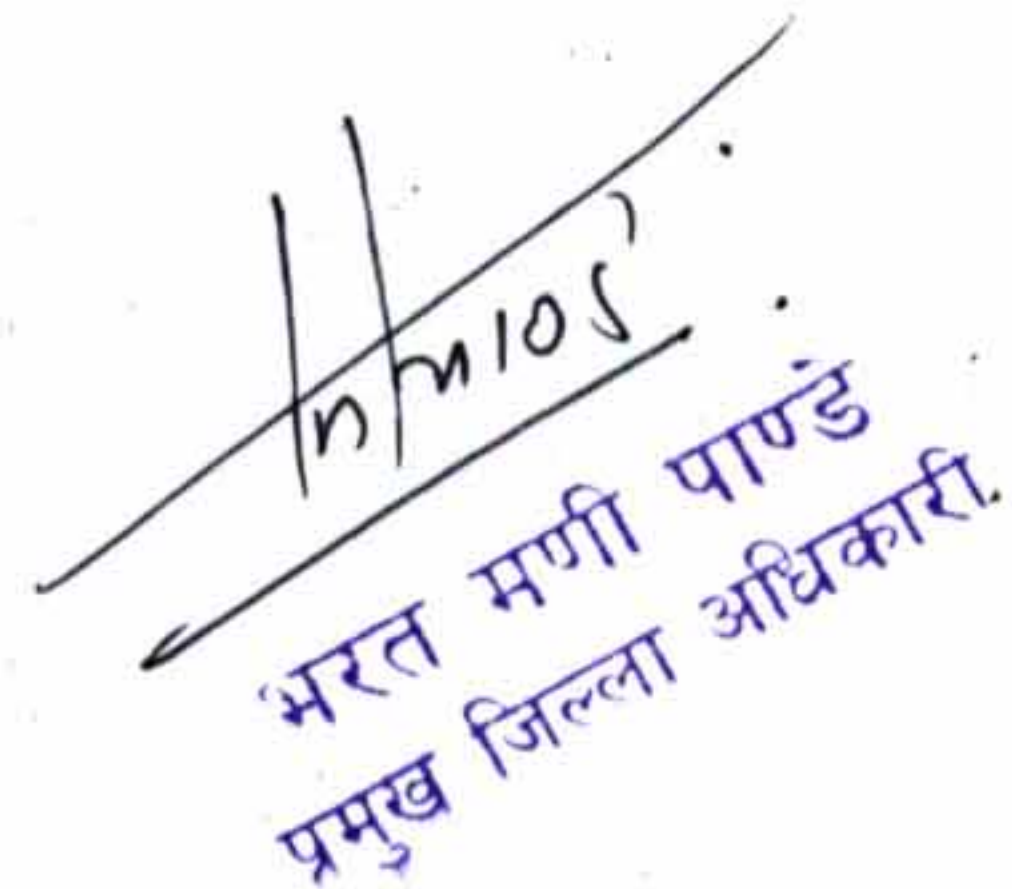 भरत मणी पाण्डे
प्रमुख जिल्ला अधिकारी.